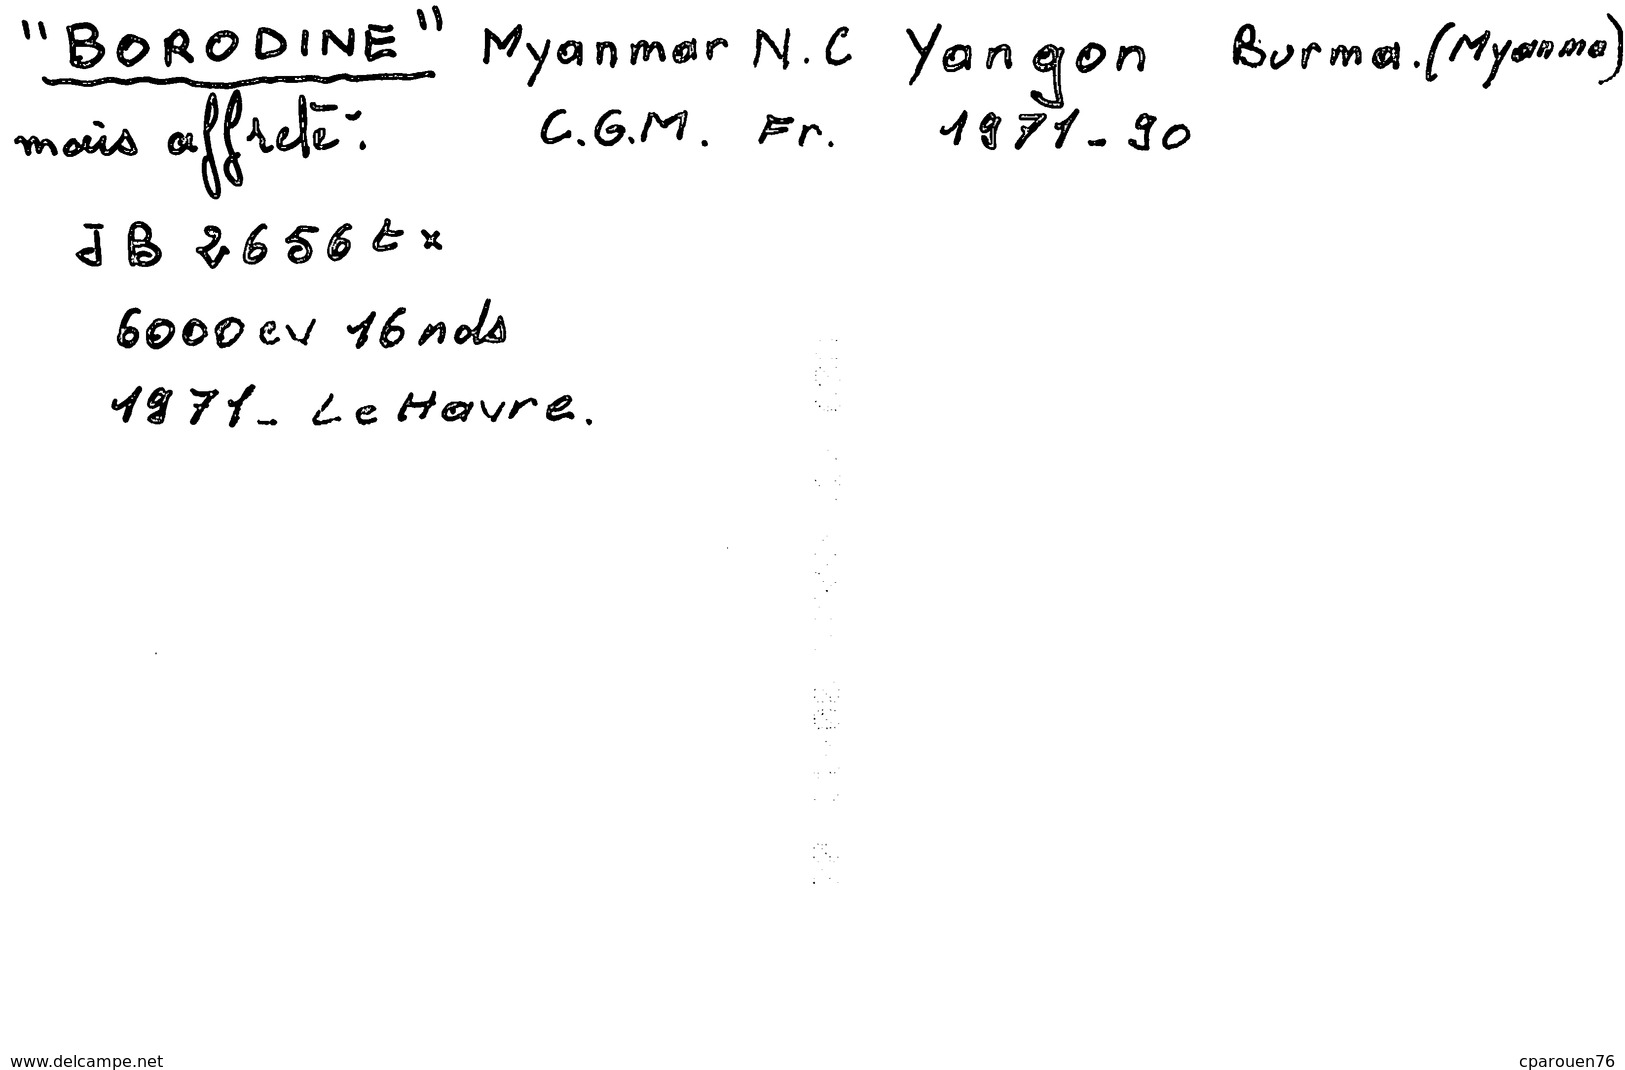 "BORODINE" Myanmar N.C Yangon Burma. (Myanma)
mais affreté: C.G.M. Fr. 1971-90
JB 2656 tx
6000 cv 16 nds
1971- Le Havre.
www.delcampe.net
cparouen76